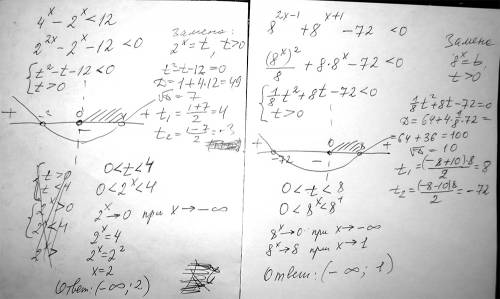 4^x - 2^x < 12
2^2x - 2^x - 12 < 0
{ t² - t - 12 < 0
t > 0
Замена:
2^x = t, t > 0
t² - t - 12 = 0
D = 1 + 4·12 = 49
√D = 7
t₁ = (1+7)/2 = 4
t₂ = (1-7)/2 = -3
+ -3 0 - 4 +
t > 0
t < 4
0 < t < 4
2^x > 0
2^x < 4
0 < 2^x < 4
2^x → 0 при x → -∞
2^x = 4
2^x = 2²
x = 2
Ответ: (-∞; 2)
8^2x-1 + 8^x+1 - 72 < 0
(8^x)²/8 + 8·8^x - 72 < 0
{ 1/8 t² + 8t - 72 < 0
t > 0
Замена
8^x = t,
t > 0
1/8 t² + 8t - 72 = 0
D = 64 + 4·1/8·72 =
= 64 + 36 = 100
√D = 10
t₁ = (-8+10)·8/2 = 8
t₂ = (-8-10)·8/2 = -72
+ -72 - 0 8 +
0 < t < 8
0 < 8^x < 8¹
8^x → 0 при x → -∞
8^x → 8 при x → 1
Ответ: (-∞; 1)